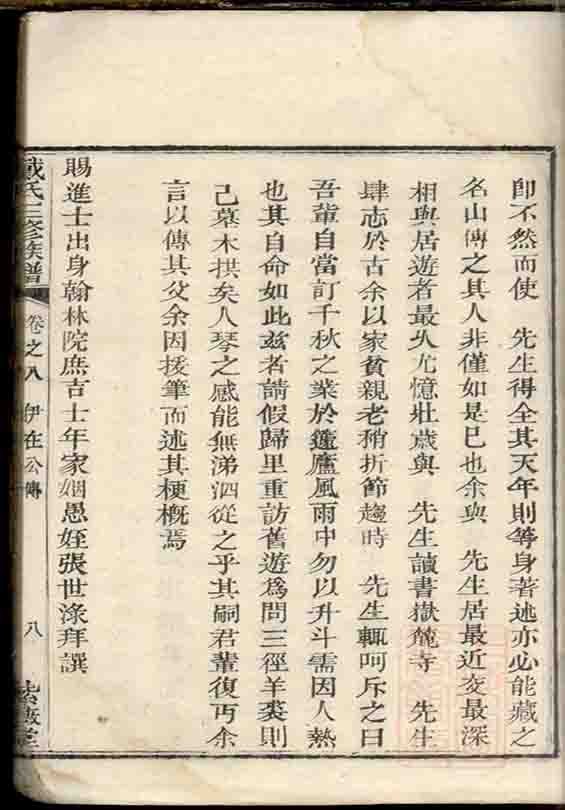 卽不然而使 先生得全其天年則等身著述亦必能藏之
名山傳之其人非僅如是巳也余與 先生居最近交最深
相與居遊者最久尤憶壯歲與 先生讀書嶽麓寺 先生
肆志於古余以家貧親老稍折節趨時 先生輒呵斥之曰
吾輩自當訂千秋之業於蘧廬風雨中勿以升斗需因人熱
也其自命如此兹者請假歸里重訪舊遊爲問三徑羊裘則
己墓木拱矣人琴之感能無涕泗從之乎其嗣君輩復丐余
言以傳其父余因援筆而述其梗概焉
賜進士出身翰林院庶吉士年家姻愚姪張世㴋拜譔
戴氏三修族譜 卷之八 伊在公傳 八